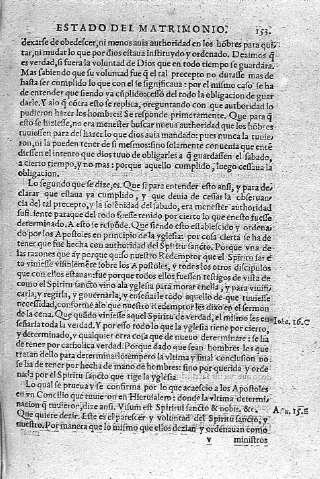 ESTADO DEL MATRIMONIO. 153.
dexarse de obedescer, ni menos auia authoridad en los hõbres para qui
tar, ni mudar lo que por dios estaua instituydo y ordenado. Deximos q̃
es verdad, si fuera la voluntad de Dios que en todo tiempo se guardára.
Mas sabiendo que su voluntad fue q̃ el tal precepto no durasse mas de
hasta ser complido lo que con el se significaua: por el mismo caso se ha
de entender que siendo ya cũplido cesso del todo la obligacion de guar
darle. Y a lo q̃ cõtra esto se replica, preguntando con que authoridad lo
pudieron hazer los hombres? Se responde primeramente. Que para q̃
esto se hiziesse, no era menester buscar nueua authoridad que los hõbres
tuuiessen para deshazer lo que dios auia mandado: pues nunca la tuuie-
ron, ni la pueden tener de si mesmos: sino solamente conuenia que entẽ
diessen el intento que dios tuuo de obligarles a q̃ guardassen el sabado,
a cierto tiempo, y no mas: porque aquello cumplido, luego cessaua la
obligacion.
Lo segundo que se dize, es. Que si para entender esto anssi, y para de-
clarar que estaua ya cumplido, y que deuia de cessar la obseruan
cia del tal precepto, y la solẽnidad del sabado, era menester authoridad
sufficiente para que del todo fuesse tenido por cierto lo que en esto fuesse
determinado. A esto se respõde. Que siendo esto establescido y ordena-
do por los Apostoles en principio de la yglesia: por cosa cierta se ha de
tener que fue hecha con authoridad del Spiritu sancto. Porque vna de
las razones que ay porque quiso nuestro Redemptor que el Spiritu san
cto viniesse visiblemẽte sobre los Apostoles, y todos los otros discipulos
que con ellos estauan: fue porque todos ellos fuessen testigos de vista de
como el Spiritu sancto vino a la yglesia para morar en ella, y para viuifi-
carla, y regirla, y gouernarla, y enseñarle todo aquello de que tuuiesse
necessidad, conforme a lo que nuestro Redemptor les dixo en el sermon
de la cena. Que quãdo viniesse aquel Spiritu de verdad, el mismo les en-
señaria toda la verdad. Y por esso todo lo que la yglesia tiene por cierto, Ioha. 16. C
y determinado, y qualquier otra cosa que de nueuo determinare: se ha
de tener por catholica verdad. Porque dado que sean hombres los que
tratan dello para determinarlo: empero la vltima y final conclusion no
se ha de tener por hecha de mano de hombres: sino por querida y orde
nada por el Spiritu sancto que rige la yglesia.
Lo qual se prueua y se confirma por lo que acaescio a los Apostoles
en vn Concilio que tuuieron en Hierusalem: donde la vltima determi-
nacion q̃ tuuieron, dize ansi. Visum est Spiritui sancto & nobis, &c. Actu. 15. E
Que quiere dezir. Este es el parescer y voluntad del Spiritu sancto, y
nuestro. Por manera que lo mismo que ellos dezian y ordenauan como
v ministros